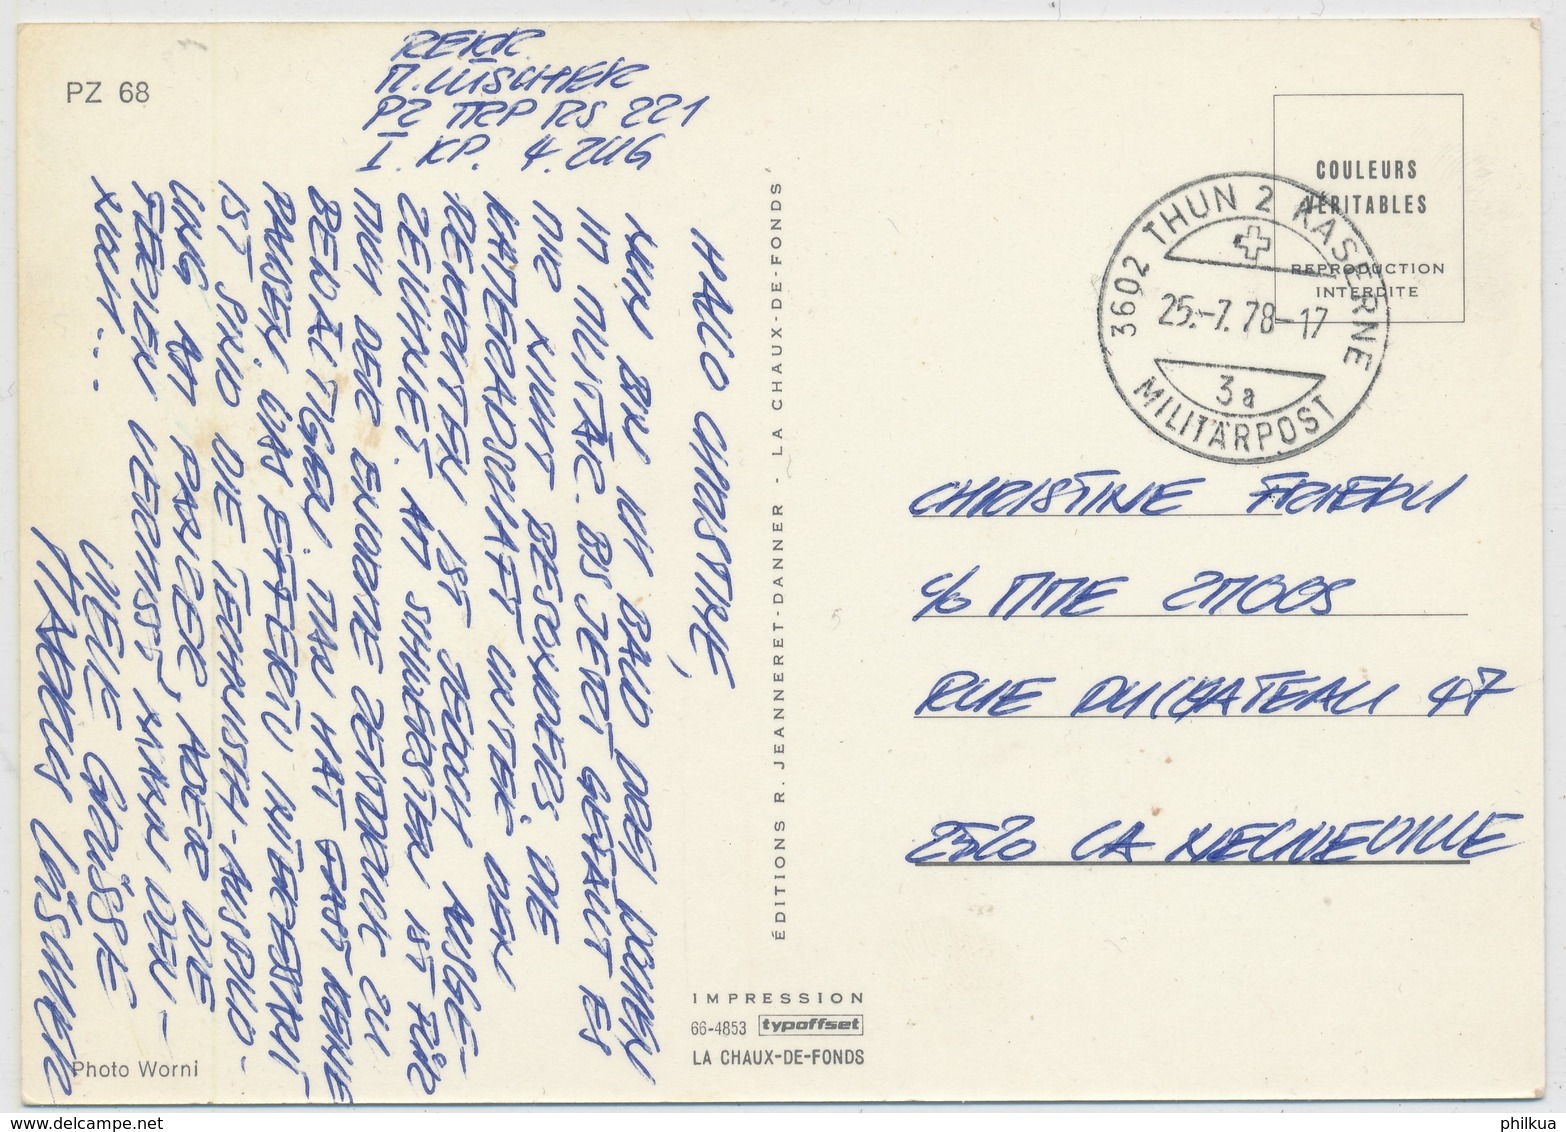 PZ 68
REKR.
M. LÜSCHER
PZ TRP RS 221
I. KP. 4. ZUG
HALLO CHRISTINE,
NUN BIN ICH BALD DREI WOCHEN
IM MILITÄR. BIS JETZT GEFÄLLT ES
MIR NICHT BESONDERS, DIE
KAMERADSCHAFT UNTER DEN
REKRUTEN IST JEDOCH AUSGE-
ZEICHNET. AM SCHWERSTEN IST FÜR
MICH DER ENORME ZEITDRUCK ZU
BEWÄLTIGEN. MAN HAT FAST KEINE
PAUSEN. WAS EFFEKTIV INTERESSANT
IST SIND DIE TECHNISCH-AUSBILD-
UNG AM PANZER, ABER DIE
FERIEN VERMISST MANN DEN-
NOCH...
VIELE GRÜSSE
MARCUS LÜSCHER
Photo Worni
ÉDITIONS R. JEANNERET-DANNER - LA CHAUX-DE-FONDS
IMPRESSION
66-4853 typoffset
LA CHAUX-DE-FONDS
COULEURS
VÉRITABLES
REPRODUCTION
INTERDITE
3602 THUN 2 KASERNE
25.-7.78-17
3a
MILITÄRPOST
CHRISTINE FRIEDLI
c/o MME ZMOOS
RUE DU CHATEAU 47
2520 LA NEUVEVILLE
philkua